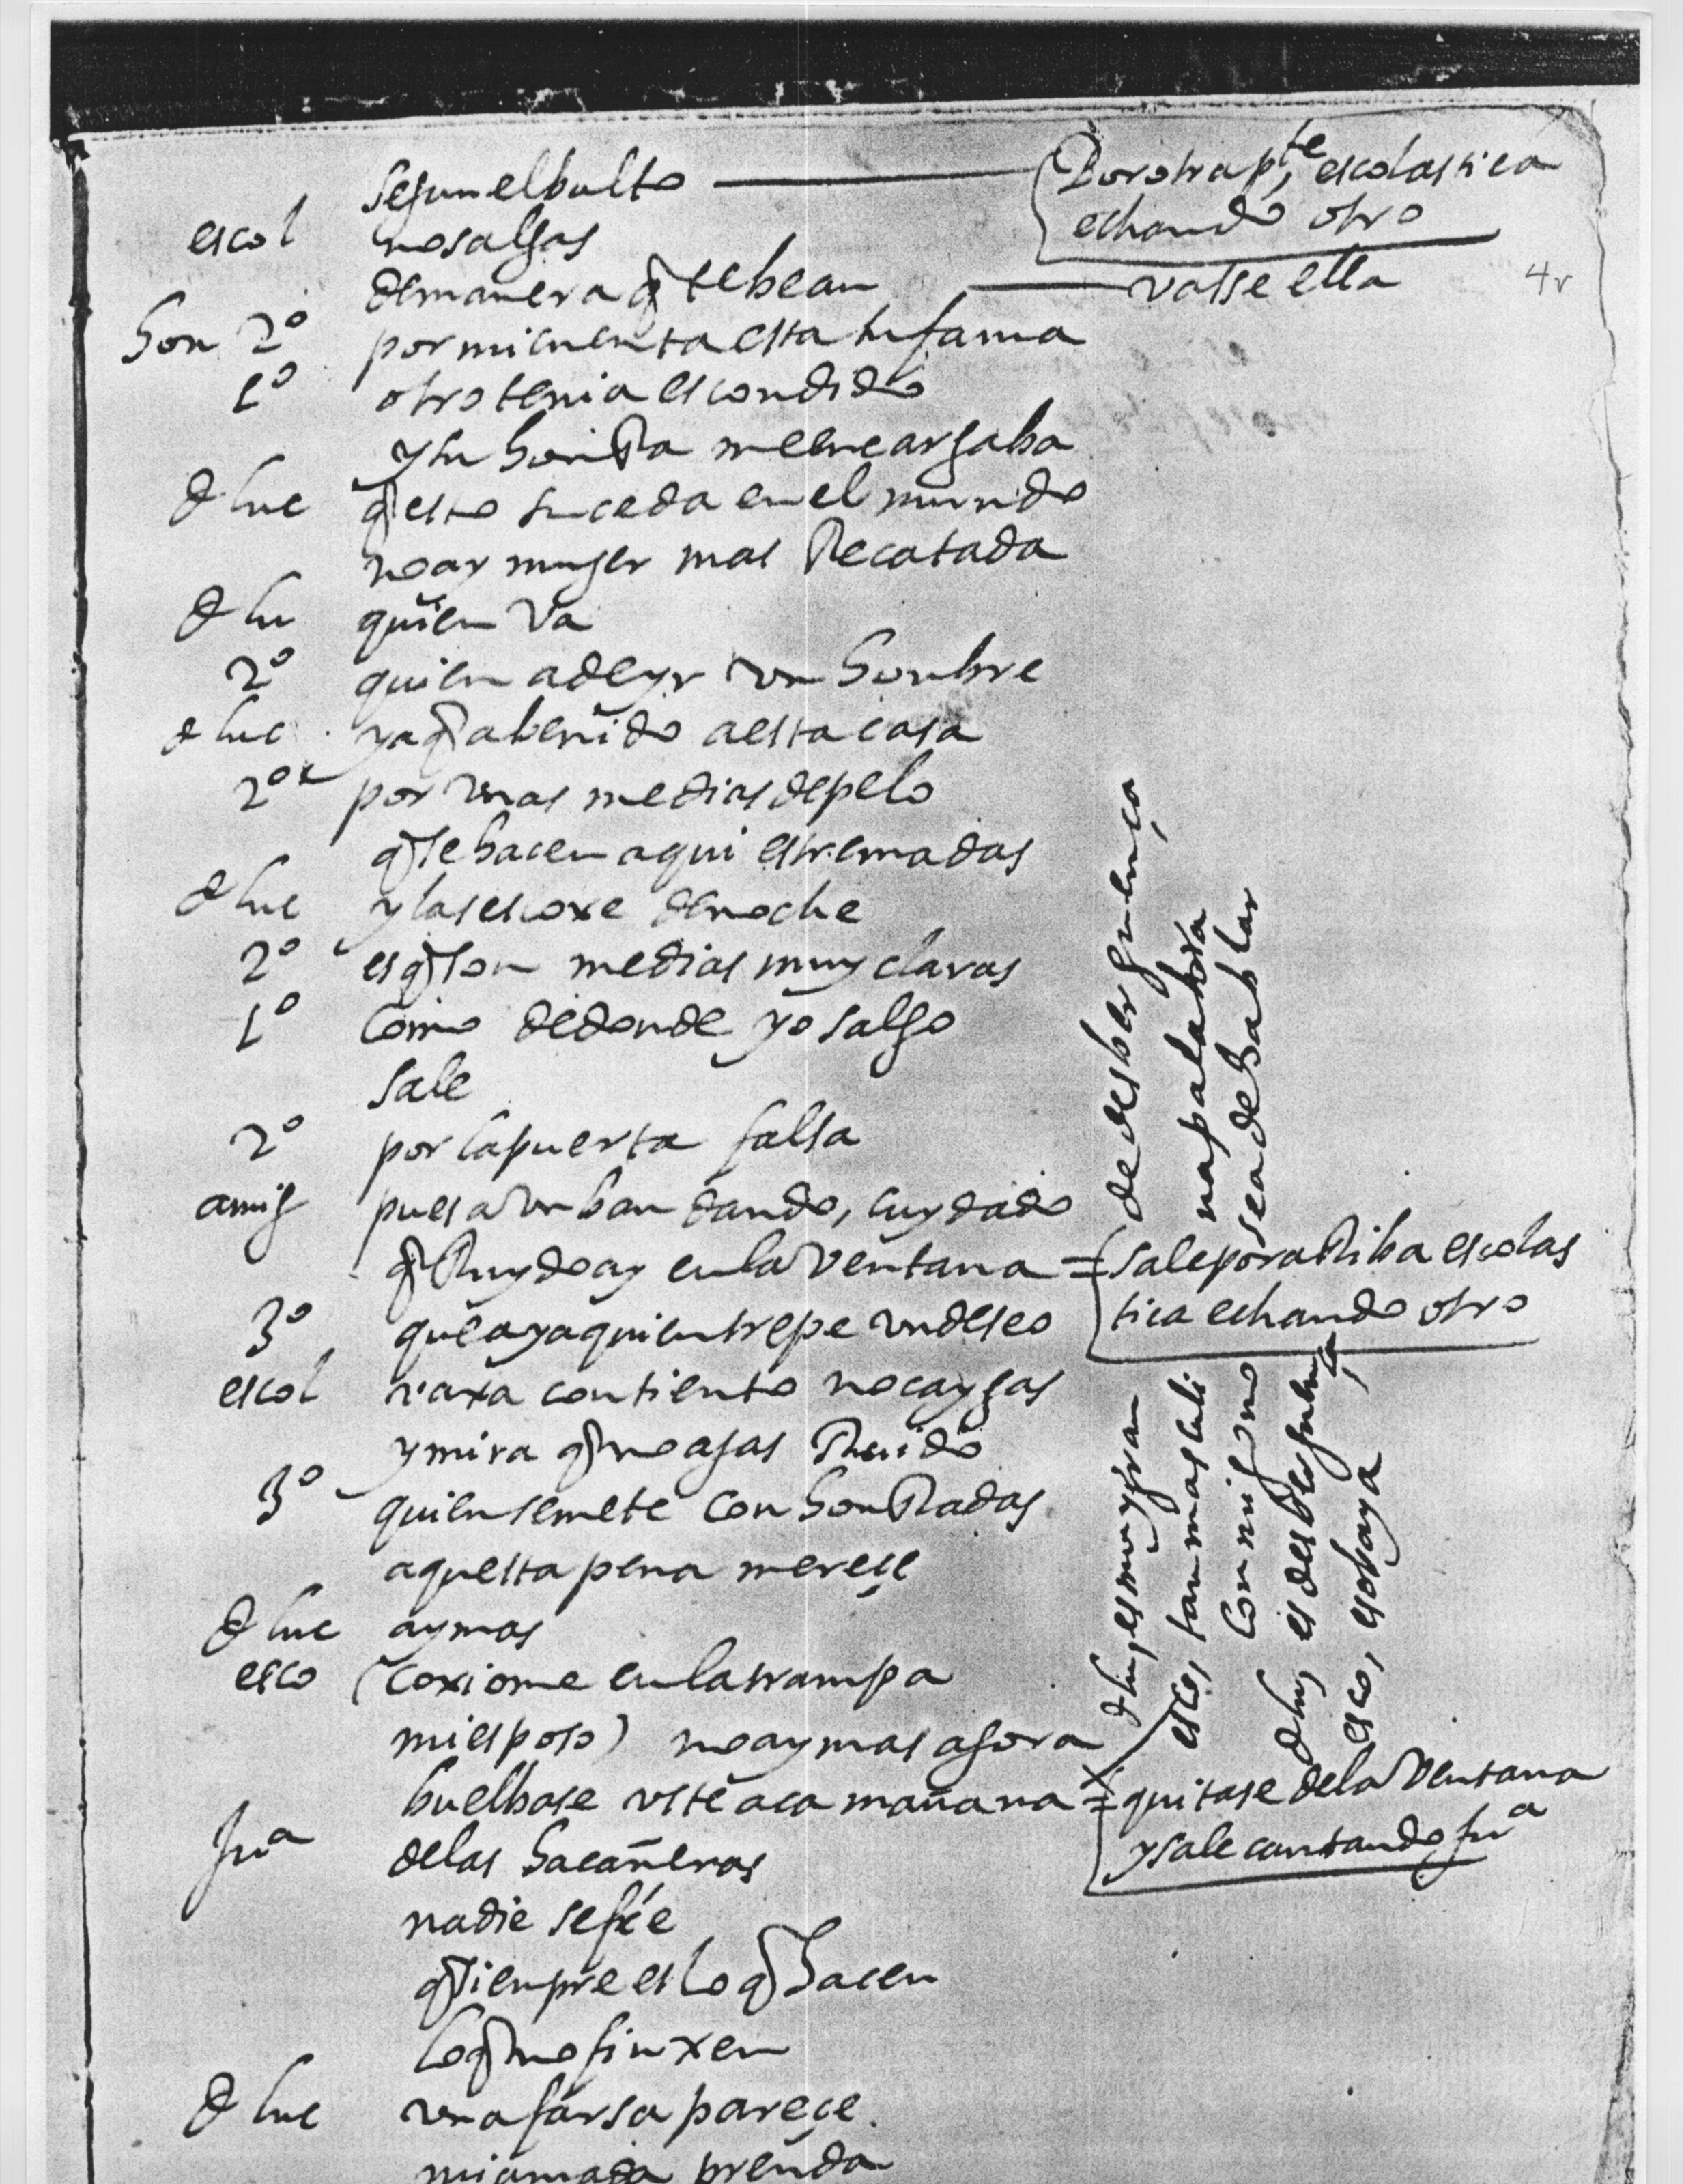 segun el bulto
Por otra pte, escolastica
echando otro
escol no salgas
de manera q te bean
vasse ella
4r
hon 2º por mi cuenta esta tu fama
1º otro tenia escondido
y tu honRa me encargaba
d luc q esto suceda en el mundo
no ay muger mas Recatada
d lu quien va
2º quien a de yr un honbre
d luc ya q a benido a esta casa
2º por unas medias de pelo
q se hacen aqui estremadas
d luc y las escoxe de noche
2º es q son medias muy claras
1º como de donde yo salgo
sale
2º por la puerta falsa
amig pues a un ban dando, cuydado
q Ruydo ay en la ventana =
sale por aRiba escolas
tica echando otro
3º que aya quien trepe un deseo
escol vaxa con tiento no caygas
y mira q no agas Ruido
3º quien se mete con honRadas
aquesta pena mereçe
d luc ay mas
esco (coxiome en la trampa
mi esposo) no ay mas agora
buelbase uste aca mañana =
quitase de la ventana
y sale cantando juª
d luc, es muy gran
de desberguença
esco, tan mas tali
na palabra
Conmigo no
sea de hablar
d luc, es desberguença
esco, esobaya
juª de las haçañeras
nadie se fie
q sienpre es lo q hacen
lo q no finxen
d luc una farsa pareçe
mi amada prenda